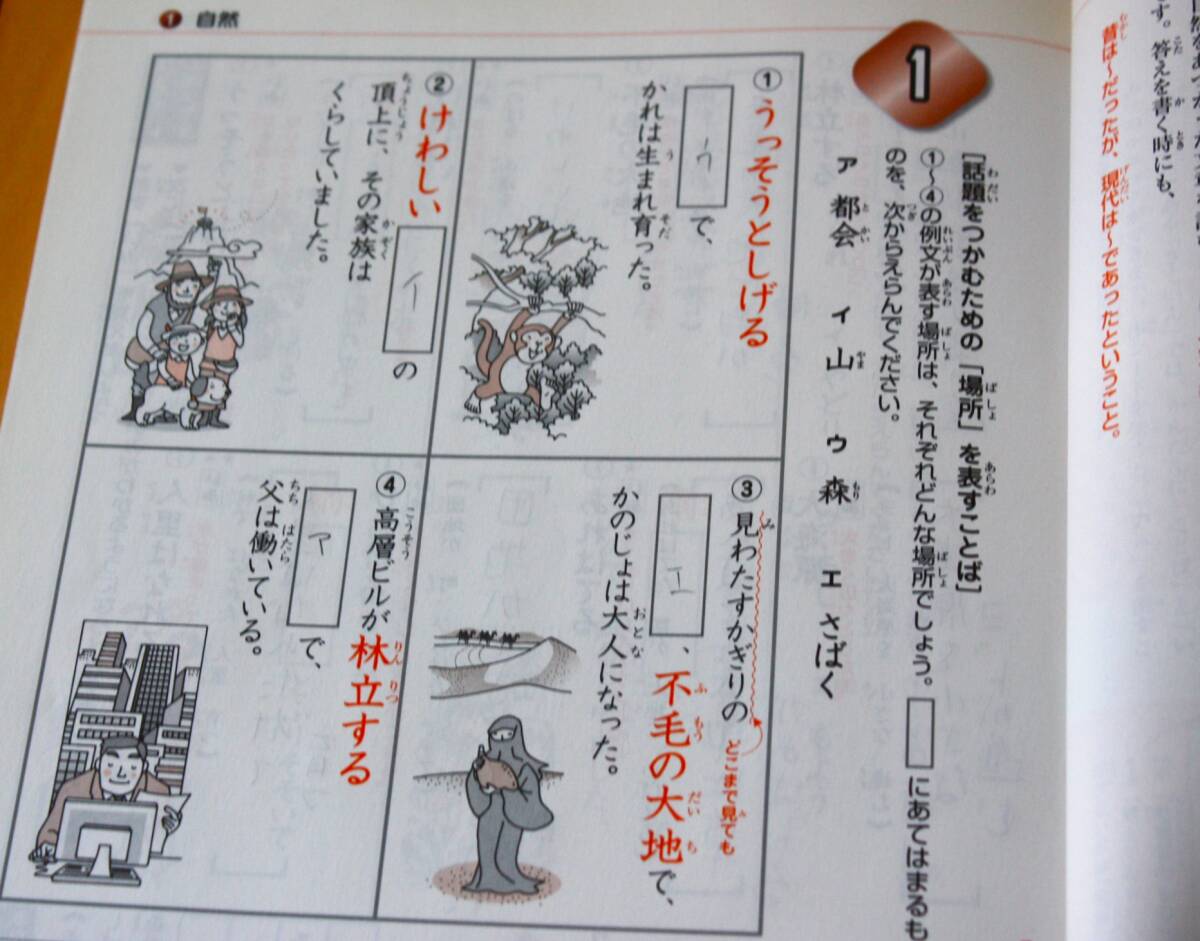 昔は～だったが、現代は～であったということ。
す。答えを書く時にも、
❶ 自然
1
［話題をつかむための「場所」を表すことば］
①～④の例文が表す場所は、それぞれどんな場所でしょう。□にあてはまるも
のを、次からえらんでください。
ア 都会 イ 山 ウ 森 エ さばく
① うっそうとしげる
ウ で、
かれは生まれ育った。
② けわしい イ の
頂上に、その家族は
くらしていました。
③ 見わたすかぎりの
どこまで見ても
エ 、不毛の大地で、
かのじょは大人になった。
④ 高層ビルが林立する
ア で、
父は働いている。